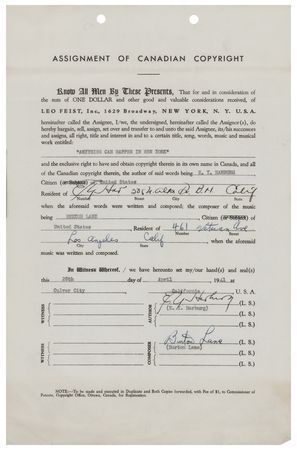 ASSIGNMENT OF CANADIAN COPYRIGHT
Know All Men By These Presents, That for and in consideration of
the sum of ONE DOLLAR and other good and valuable considerations received, of
LEO FEIST, Inc., 1629 Broadway, NEW YORK, N. Y. U.S.A.
hereinafter called the Assignee, I/we, the undersigned, hereinafter called the Assignor(s), do
hereby bargain, sell, assign, set over and transfer to and unto the said Assignee, its/his successors
and assigns, all right, title and interest in and to a certain title, song, words, music and musical
work entitled:
"ANYTHING CAN HAPPEN IN NEW YORK"
and the exclusive right to have and obtain copyright therein in its own name in Canada, and all
of the Canadian copyright therein, the author of said words being E. Y. HARBURG
Citizen (or Subject) of United States
Resident of
Number Street City State
when the aforesaid words were written and composed; the composer of the music
being BURTON LANE Citizen (or Subject) of
United States Resident of 461
Number Street
Los Angeles Calif when the aforesaid
City State
music was written and composed.
In Witness Whereof, I/we have hereunto set my/our hand(s) and seal(s) this
28th day of April 1941 at
Culver City California U. S. A.
WITNESS AUTHOR E. Y. Harburg (L. S.)
(E. Y. Harburg) (L. S.)
(L. S.)
WITNESS COMPOSER Burton Lane (L. S.)
(Burton Lane) (L. S.)
(L. S.)
NOTE:—To be made and executed in Duplicate and Both Copies forwarded, with Fee of $1, to Commissioner of
Patents, Copyright Office, Ottawa, Canada, for Registration.